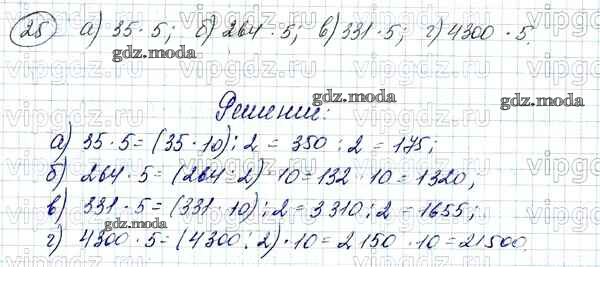 25 а) 35 · 5; б) 264 · 5; в) 331 · 5; г) 4300 · 5.
gdz.moda
gdz.moda
gdz.moda
gdz.moda
Решение:
а) 35 · 5 = (35 · 10) : 2 = 350 : 2 = 175;
б) 264 · 5 = (264 : 2) · 10 = 132 · 10 = 1320;
в) 331 · 5 = (331 · 10) : 2 = 3310 : 2 = 1655;
gdz.moda
gdz.moda
г) 4300 · 5 = (4300 : 2) · 10 = 2150 · 10 = 21500.